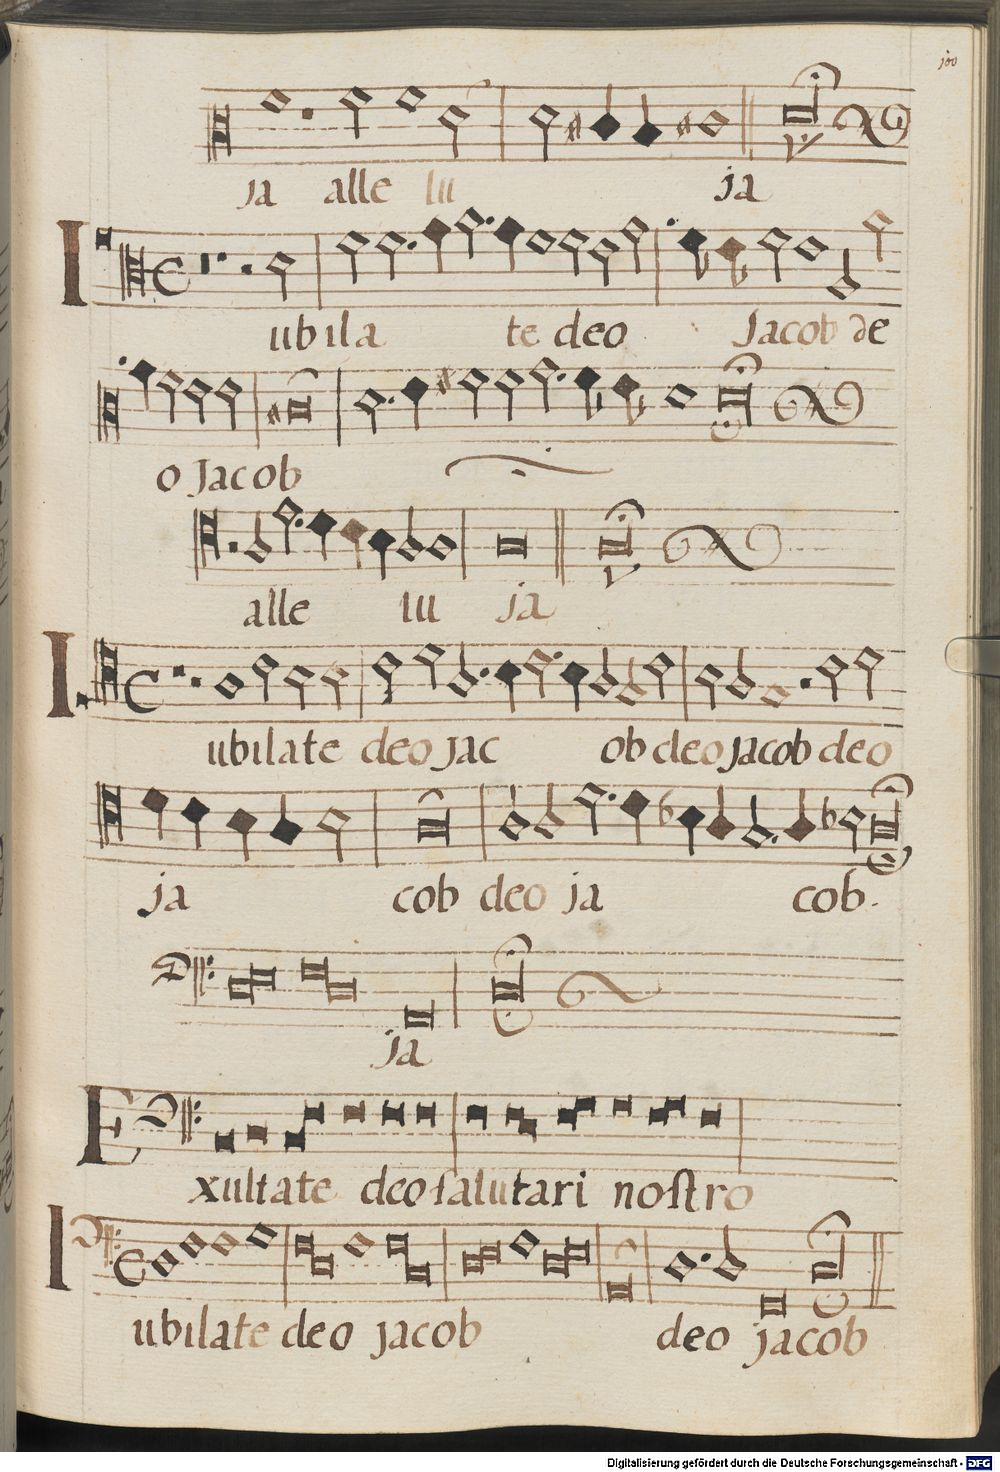 100
ja alle lu ja
Iubila te deo Jacob de
o Jacob
alle lu ja
Iubilate deo jac ob deo jacob deo
ja cob deo ja cob.
ja
Exultate deo salutari nostro
Iubilate deo jacob deo jacob
Digitalisierung gefördert durch die Deutsche Forschungsgemeinschaft - DFG